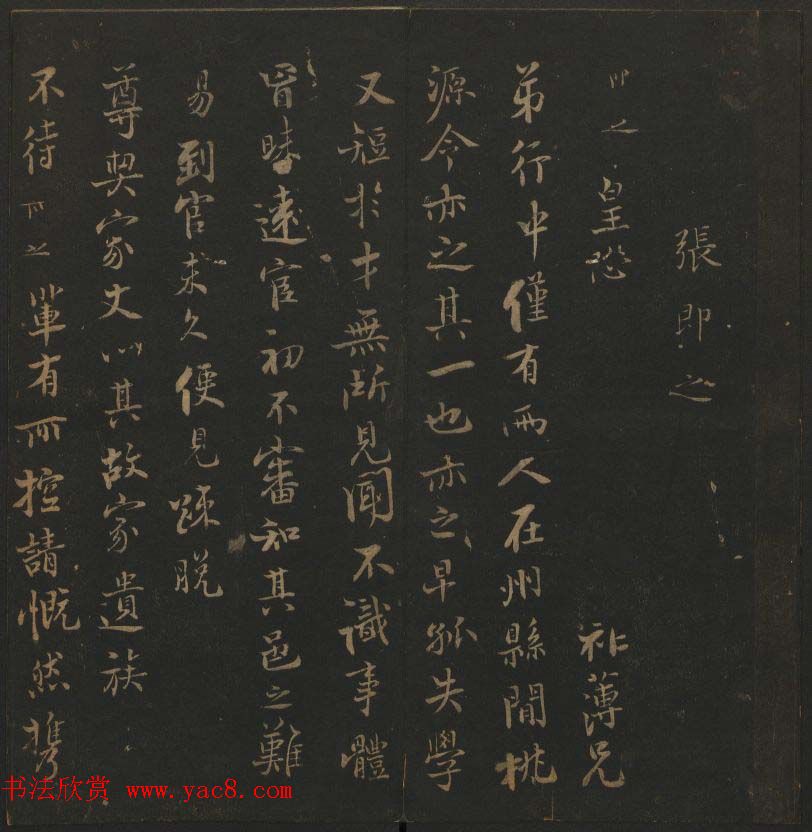 張即之
即之皇恐 祚薄兄
弟行中僅有兩人在州縣間桃
源令亦之其一也亦之早孤失學
又短於才無所見聞不識事體
冒昧遠官初不審知其邑之難
易到官未久便見踈脫
尊契家丈以其故家遺族
不待即之輩有所控請慨然攜
书法欣赏 www.yac8.com